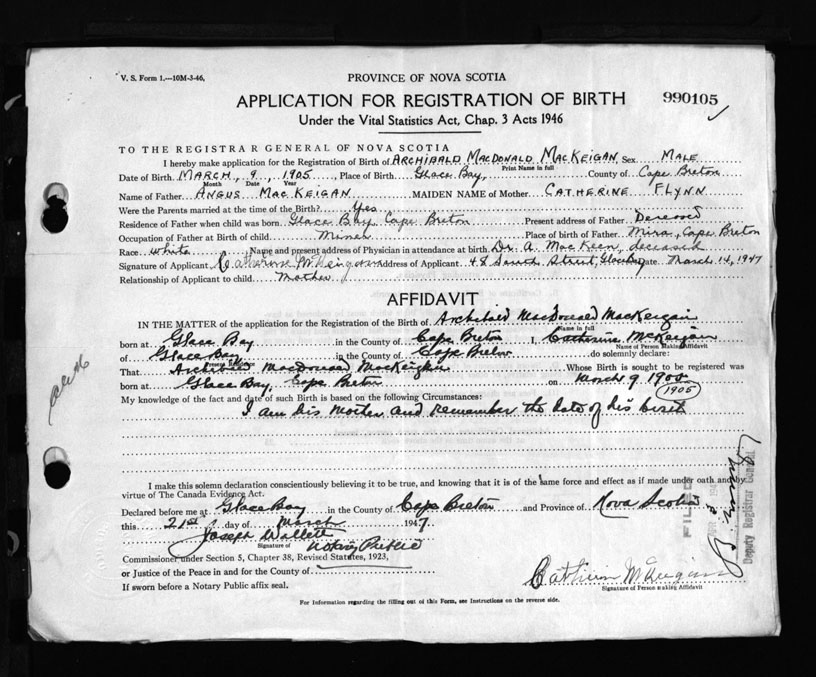 V. S. Form 1.—10M-3-46.
PROVINCE OF NOVA SCOTIA
APPLICATION FOR REGISTRATION OF BIRTH 990105
Under the Vital Statistics Act, Chap. 3 Acts 1946
TO THE REGISTRAR GENERAL OF NOVA SCOTIA
I hereby make application for the Registration of Birth of ARCHIBALD MACDONALD MACKEIGAN Sex MALE
Print Name in full
Date of Birth MARCH, 9, 1905, Place of Birth Glace Bay, County of Cape Breton
Month Date Year
Name of Father ANGUS MACKEIGAN MAIDEN NAME of Mother CATHERINE FLYNN
Were the Parents married at the time of the Birth? Yes
Residence of Father when child was born Glace Bay Cape Breton Present address of Father Deceased
Occupation of Father at Birth of child Miner Place of Birth of father Mira, Cape Breton
Race white, Name and present address of Physician in attendance at birth Dr. A. MacKeen, deceased
Signature of Applicant Catherine Address of Applicant 48 Street, Glace Bay Date March 14, 1947
Relationship of Applicant to child Mother
AFFIDAVIT
IN THE MATTER of the application for the Registration of the Birth of Archibald MacDonald MacKeigan
born at Glace Bay in the County of Cape Breton I, Catherine McKeigan
Name of Person Making Affidavit
of Glace Bay in the County of Cape Breton do solemnly declare:
That Archibald MacDonald MacKeigan Whose Birth is sought to be registered was
born at Glace Bay, Cape Breton on March 9, 1900
1905
My knowledge of the fact and date of such Birth is based on the following Circumstances:
I am his Mother and remember the date of his birth
I make this solemn declaration conscientiously believing it to be true, and knowing that it is of the same force and effect as if made under oath and by
virtue of The Canada Evidence Act.
Declared before me at Glace Bay in the County of Cape Breton and Province of Nova Scotia
this 21st day of March 1947
Joseph Notary Public
Signature of
Commissioner under Section 5, Chapter 38, Revised Statutes, 1923,
or Justice of the Peace in and for the County of
If sworn before a Notary Public affix seal.
Signature of Person making Affidavit
For Information regarding the filling out of this Form, see Instructions on the reverse side.
FILED
Deputy Registrar General